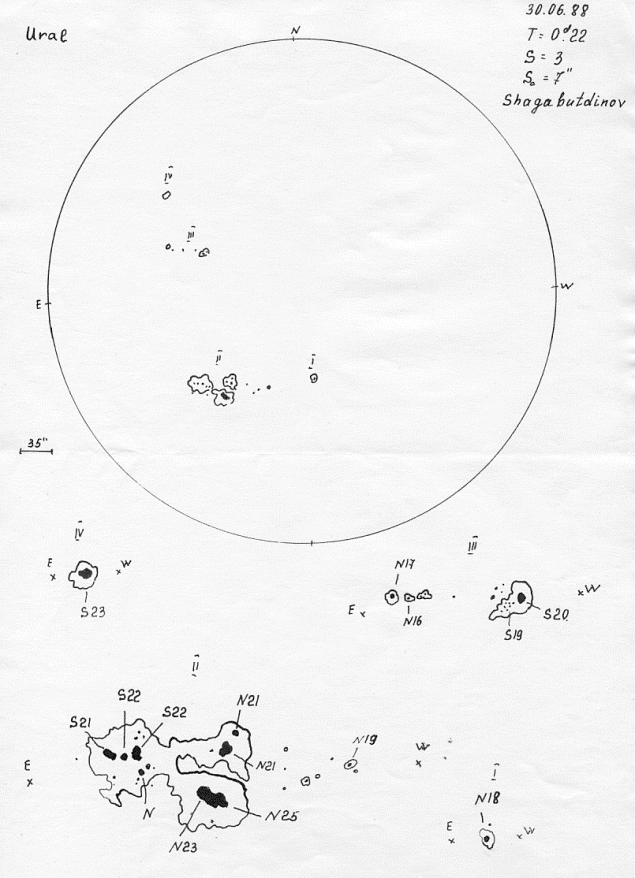 Ural
30.06.88
T = 0.d22
S = 3
S₀ = 7"
Shagabutdinov
N
IV
III
E
W
II
I
35"
IV
E
W
S23
III
N17
E
N16
W
S20
S19
II
S21
S22
S22
N21
N21
N19
W
E
N
N23
N25
I
N18
E
W